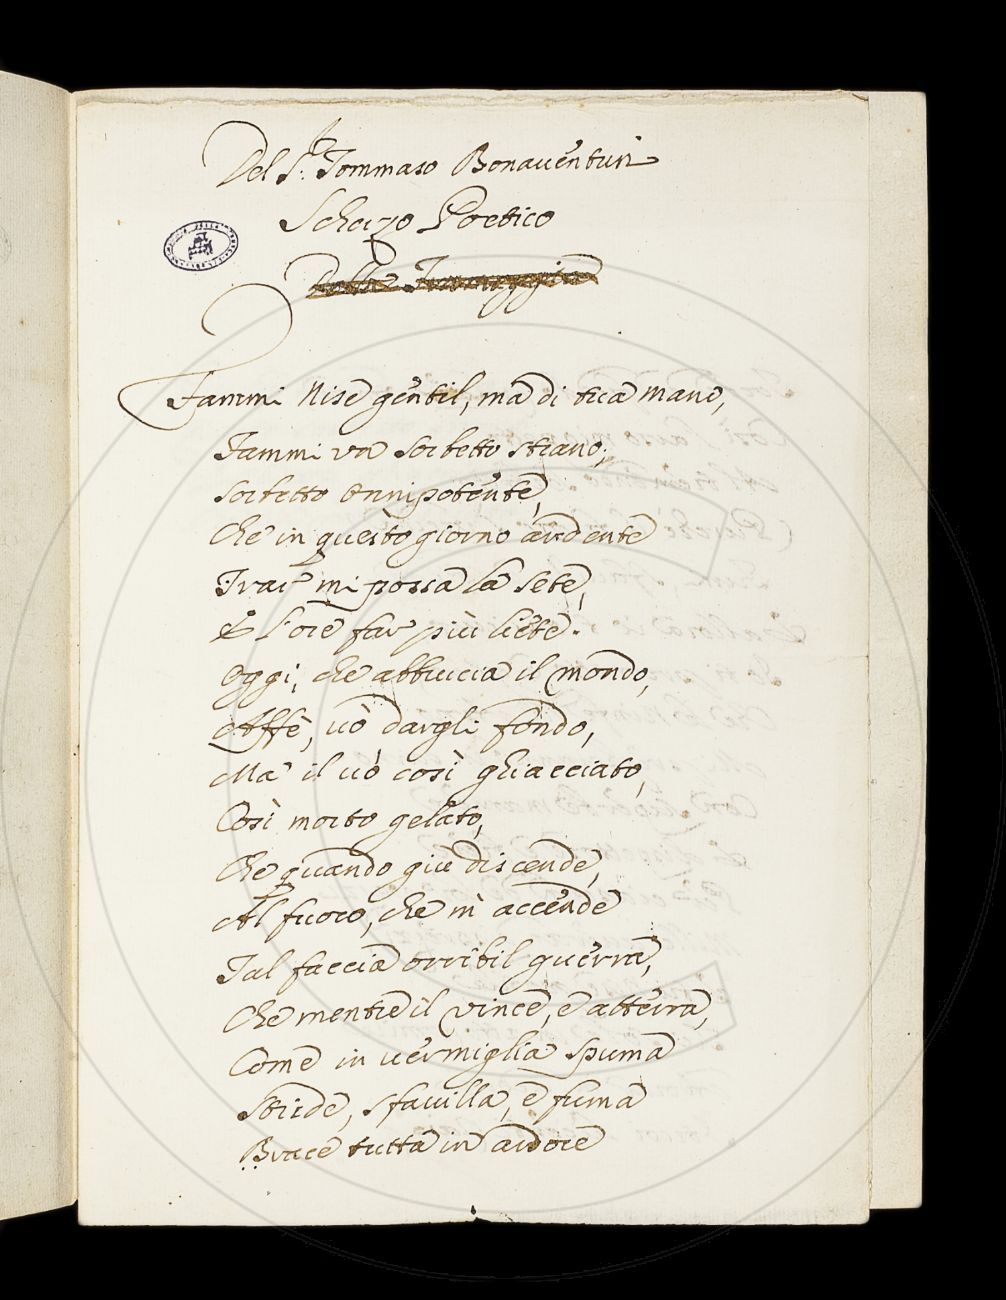 Del S.r Tommaso Bonauenturi
Scherzo Poetico
Fammi Nise gentil, ma di tua mano,
Fammi un sorbetto strano;
Sorbetto onnipotente,
Che in questo giorno ardente
Trar mi possa la sete,
E l'ore far più liete.
Oggi, che abbrucia il mondo,
Affè, uò dargli fondo,
Ma il uò così ghiacciato,
Così morto gelato,
Che quando giù discende,
Al fuoco, che m'accende
Tal faccia orribil guerra,
Che mentre il vince, e atterra,
Come in uermiglia spuma
Stride, sfauilla, e fuma
Brace tutta in ardore